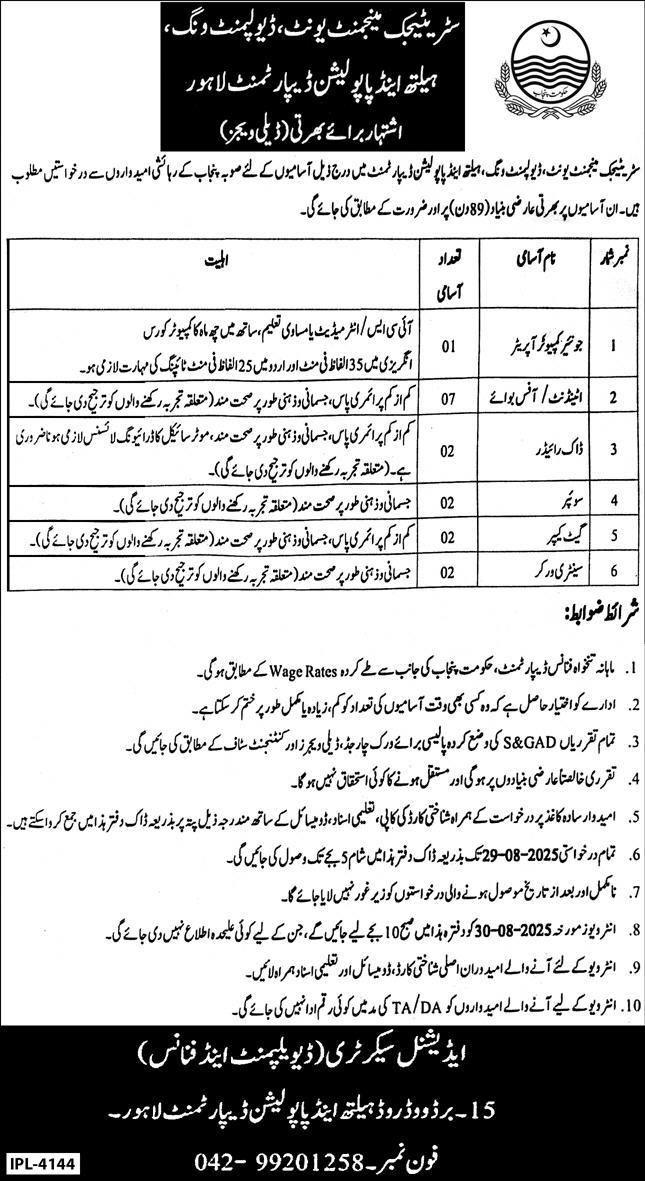 سٹریٹیجک مینجمنٹ یونٹ، ڈیولپمنٹ ونگ،
ہیلتھ اینڈ پاپولیشن ڈیپارٹمنٹ لاہور
اشتہار برائے بھرتی (ڈیلی ویجز)
حکومت پنجاب
سٹریٹیجک مینجمنٹ یونٹ، ڈیولپمنٹ ونگ، ہیلتھ اینڈ پاپولیشن ڈیپارٹمنٹ میں درج ذیل آسامیوں کے لئے صوبہ پنجاب کے رہائشی امیدواروں سے درخواستیں مطلوب
ہیں۔ ان آسامیوں پر بھرتی عارضی بنیاد (89 دن) پر اور ضرورت کے مطابق کی جائے گی۔
نمبر شمار نام آسامی تعداد آسامی اہلیت
1 جونیئر کمپیوٹر آپریٹر 01 آئی سی ایس/ انٹرمیڈیٹ یا مساوی تعلیم، ساتھ میں چھ ماہ کا کمپیوٹر کورس
انگریزی میں 35 الفاظ فی منٹ اور اردو میں 25 الفاظ فی منٹ ٹائپنگ کی مہارت لازمی ہو۔
2 اٹینڈنٹ/ آفس بوائے 07 کم از کم پرائمری پاس، جسمانی و ذہنی طور پر صحت مند (متعلقہ تجربہ رکھنے والوں کو ترجیح دی جائے گی)۔
3 ڈاک رائیڈر 02 کم از کم پرائمری پاس، جسمانی و ذہنی طور پر صحت مند، موٹر سائیکل کا ڈرائیونگ لائسنس لازمی ہونا ضروری
ہے۔ (متعلقہ تجربہ رکھنے والوں کو ترجیح دی جائے گی)۔
4 سوئپر 02 جسمانی و ذہنی طور پر صحت مند (متعلقہ تجربہ رکھنے والوں کو ترجیح دی جائے گی)۔
5 گیٹ کیپر 02 کم از کم پرائمری پاس، جسمانی و ذہنی طور پر صحت مند (متعلقہ تجربہ رکھنے والوں کو ترجیح دی جائے گی)۔
6 سینٹری ورکر 02 جسمانی و ذہنی طور پر صحت مند (متعلقہ تجربہ رکھنے والوں کو ترجیح دی جائے گی)۔
شرائط ضوابط:
1. ماہانہ تنخواہ فنانس ڈیپارٹمنٹ، حکومت پنجاب کی جانب سے طے کردہ Wage Rates کے مطابق ہوگی۔
2. ادارے کو اختیار حاصل ہے کہ وہ کسی بھی وقت آسامیوں کی تعداد کو کم، زیادہ یا مکمل طور پر ختم کر سکتا ہے۔
3. تمام تقرریاں S&GAD کی وضع کردہ پالیسی برائے ورک چارجڈ، ڈیلی ویجز اور کنٹنجنٹ سٹاف کے مطابق کی جائیں گی۔
4. تقرری خالصتاً عارضی بنیادوں پر ہوگی اور مستقل ہونے کا کوئی استحقاق نہیں ہوگا۔
5. امیدوار سادہ کاغذ پر درخواست کے ہمراہ شناختی کارڈ کی کاپی، تعلیمی اسناد، ڈومیسائل کے ساتھ مندرجہ ذیل پتہ پر بذریعہ ڈاک دفتر ہذا میں جمع کروا سکتے ہیں۔
6. تمام درخواستی 29-08-2025 تک بذریعہ ڈاک دفتر ہذا میں شام 5 بجے تک وصول کی جائیں گی۔
7. نامکمل اور بعد از تاریخ موصول ہونے والی درخواستوں کو زیر غور نہیں لایا جائے گا۔
8. انٹرویوز مورخہ 30-08-2025 کو دفتر ہذا میں صبح 10 بجے لیے جائیں گے، جن کے لیے کوئی علیحدہ اطلاع نہیں دی جائے گی۔
9. انٹرویو کے لئے آنے والے امیدوران اصلی شناختی کارڈ، ڈومیسائل اور تعلیمی اسناد ہمراہ لائیں۔
10. انٹرویو کے لیے آنے والے امیدواروں کو TA/DA کی مد میں کوئی رقم ادا نہیں کی جائے گی۔
ایڈیشنل سیکرٹری (ڈیویلپمنٹ اینڈ فنانس)
15۔ برڈووڈ روڈ ہیلتھ اینڈ پاپولیشن ڈیپارٹمنٹ لاہور۔
فون نمبر۔ 042- 99201258
IPL-4144